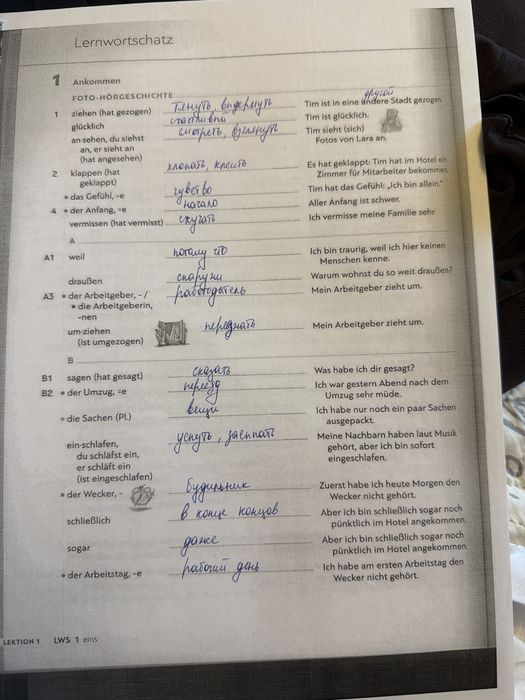 Lernwortschatz
1 Ankommen
FOTO-HÖRGESCHICHTE
другой
1 ziehen (hat gezogen) тянуть, выдернуть Tim ist in eine andere Stadt gezogen.
glücklich счастливый Tim ist glücklich.
an·sehen, du siehst смотреть, взглянуть Tim sieht (sich)
an, er sieht an Fotos von Lara an.
(hat angesehen)
2 klappen (hat хлопать, клеить Es hat geklappt: Tim hat im Hotel ein
geklappt) Zimmer für Mitarbeiter bekommen.
• das Gefühl, -e чувство Tim hat das Gefühl: „Ich bin allein."
4 • der Anfang, ⸚e начало Aller Anfang ist schwer.
vermissen (hat vermisst) скучать Ich vermisse meine Familie sehr.
A
A1 weil потому что Ich bin traurig, weil ich hier keinen
Menschen kenne.
draußen снаружи Warum wohnst du so weit draußen?
A3 • der Arbeitgeber, - / работодатель Mein Arbeitgeber zieht um.
• die Arbeitgeberin,
-nen
um·ziehen переезжать Mein Arbeitgeber zieht um.
(ist umgezogen)
B
B1 sagen (hat gesagt) сказать Was habe ich dir gesagt?
B2 • der Umzug, ⸚e переезд Ich war gestern Abend nach dem
Umzug sehr müde.
• die Sachen (Pl.) вещи Ich habe nur noch ein paar Sachen
ausgepackt.
ein·schlafen, уснуть, засыпать Meine Nachbarn haben laut Musik
du schläfst ein, gehört, aber ich bin sofort
er schläft ein eingeschlafen.
(ist eingeschlafen)
• der Wecker, - будильник Zuerst habe ich heute Morgen den
Wecker nicht gehört.
schließlich в конце концов Aber ich bin schließlich sogar noch
pünktlich im Hotel angekommen.
sogar даже Aber ich bin schließlich sogar noch
pünktlich im Hotel angekommen.
• der Arbeitstag, -e рабочий день Ich habe am ersten Arbeitstag den
Wecker nicht gehört.
LEKTION 1 LWS 1 eins